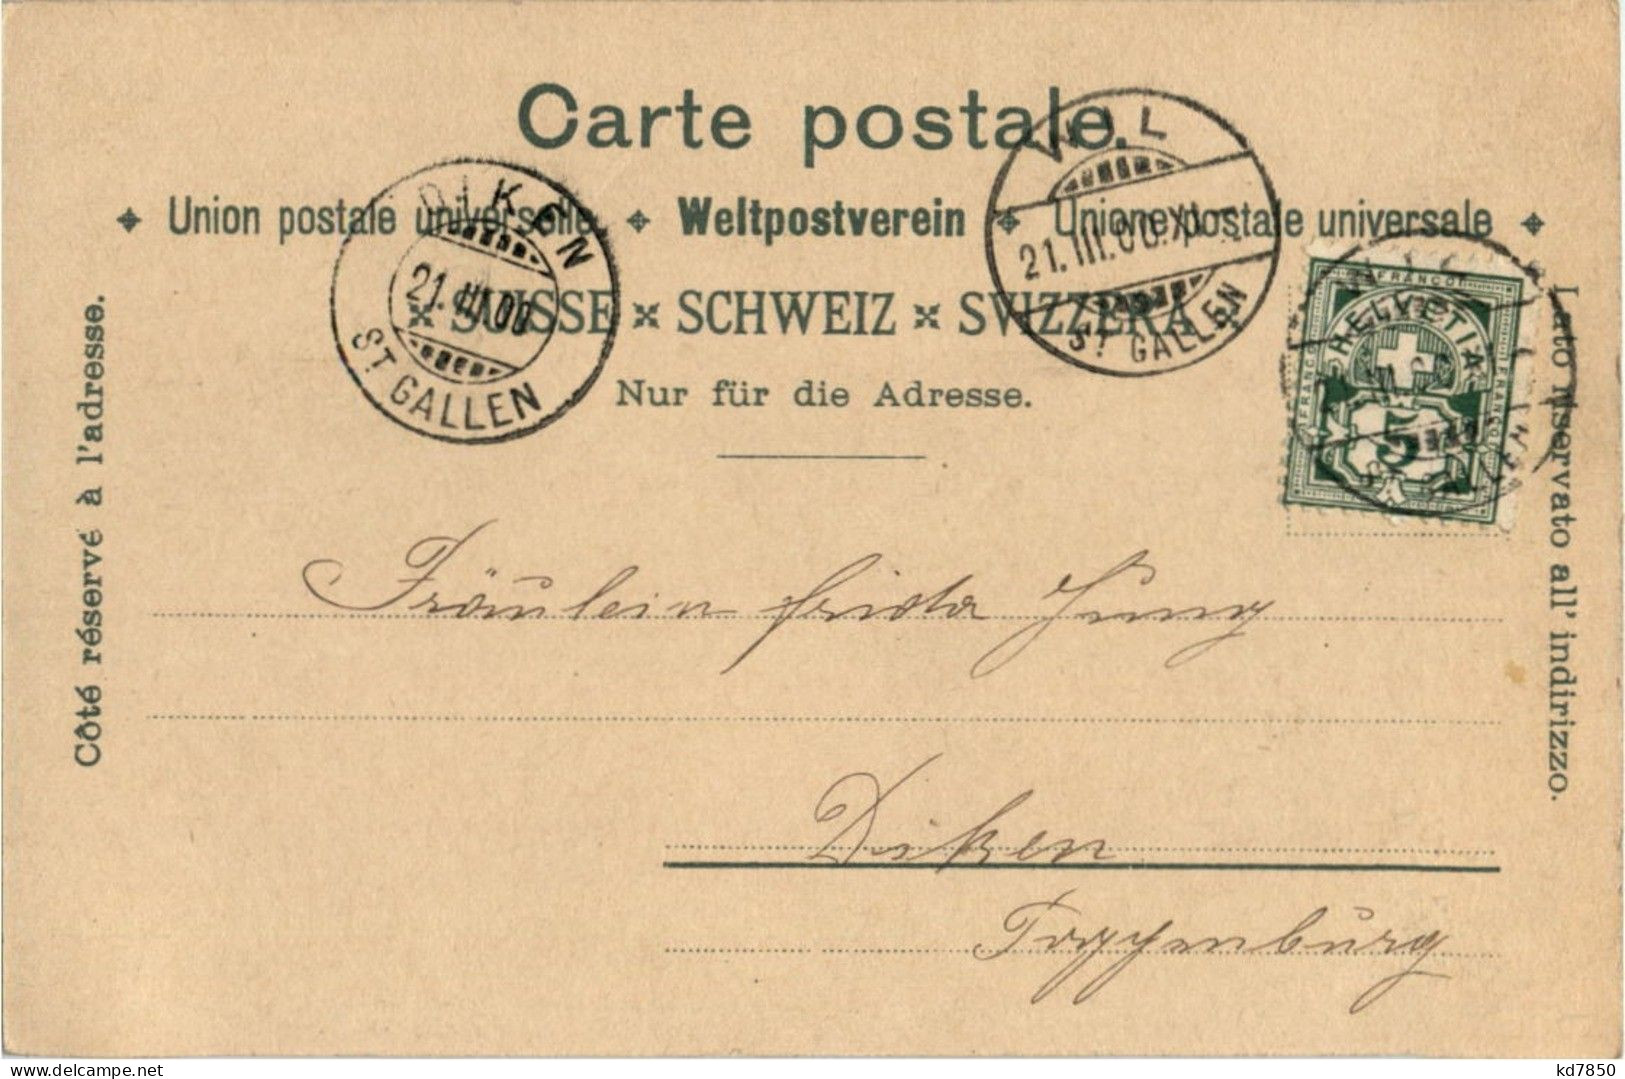 Carte postale.
Union postale universelle Weltpostverein Unione postale universale
SUISSE SCHWEIZ SVIZZERA
Nur für die Adresse.
Côté réservé à l'adresse.
Lato riservato all' indirizzo.
DIKEN
21.III.00
ST GALLEN
WIL
21.III.00.XI
ST GALLEN
FRANCO
HELVETIA
FRANCO
5
Fräulein Frida Jung
Diken
Toggenburg
delcampe.net
kd7850